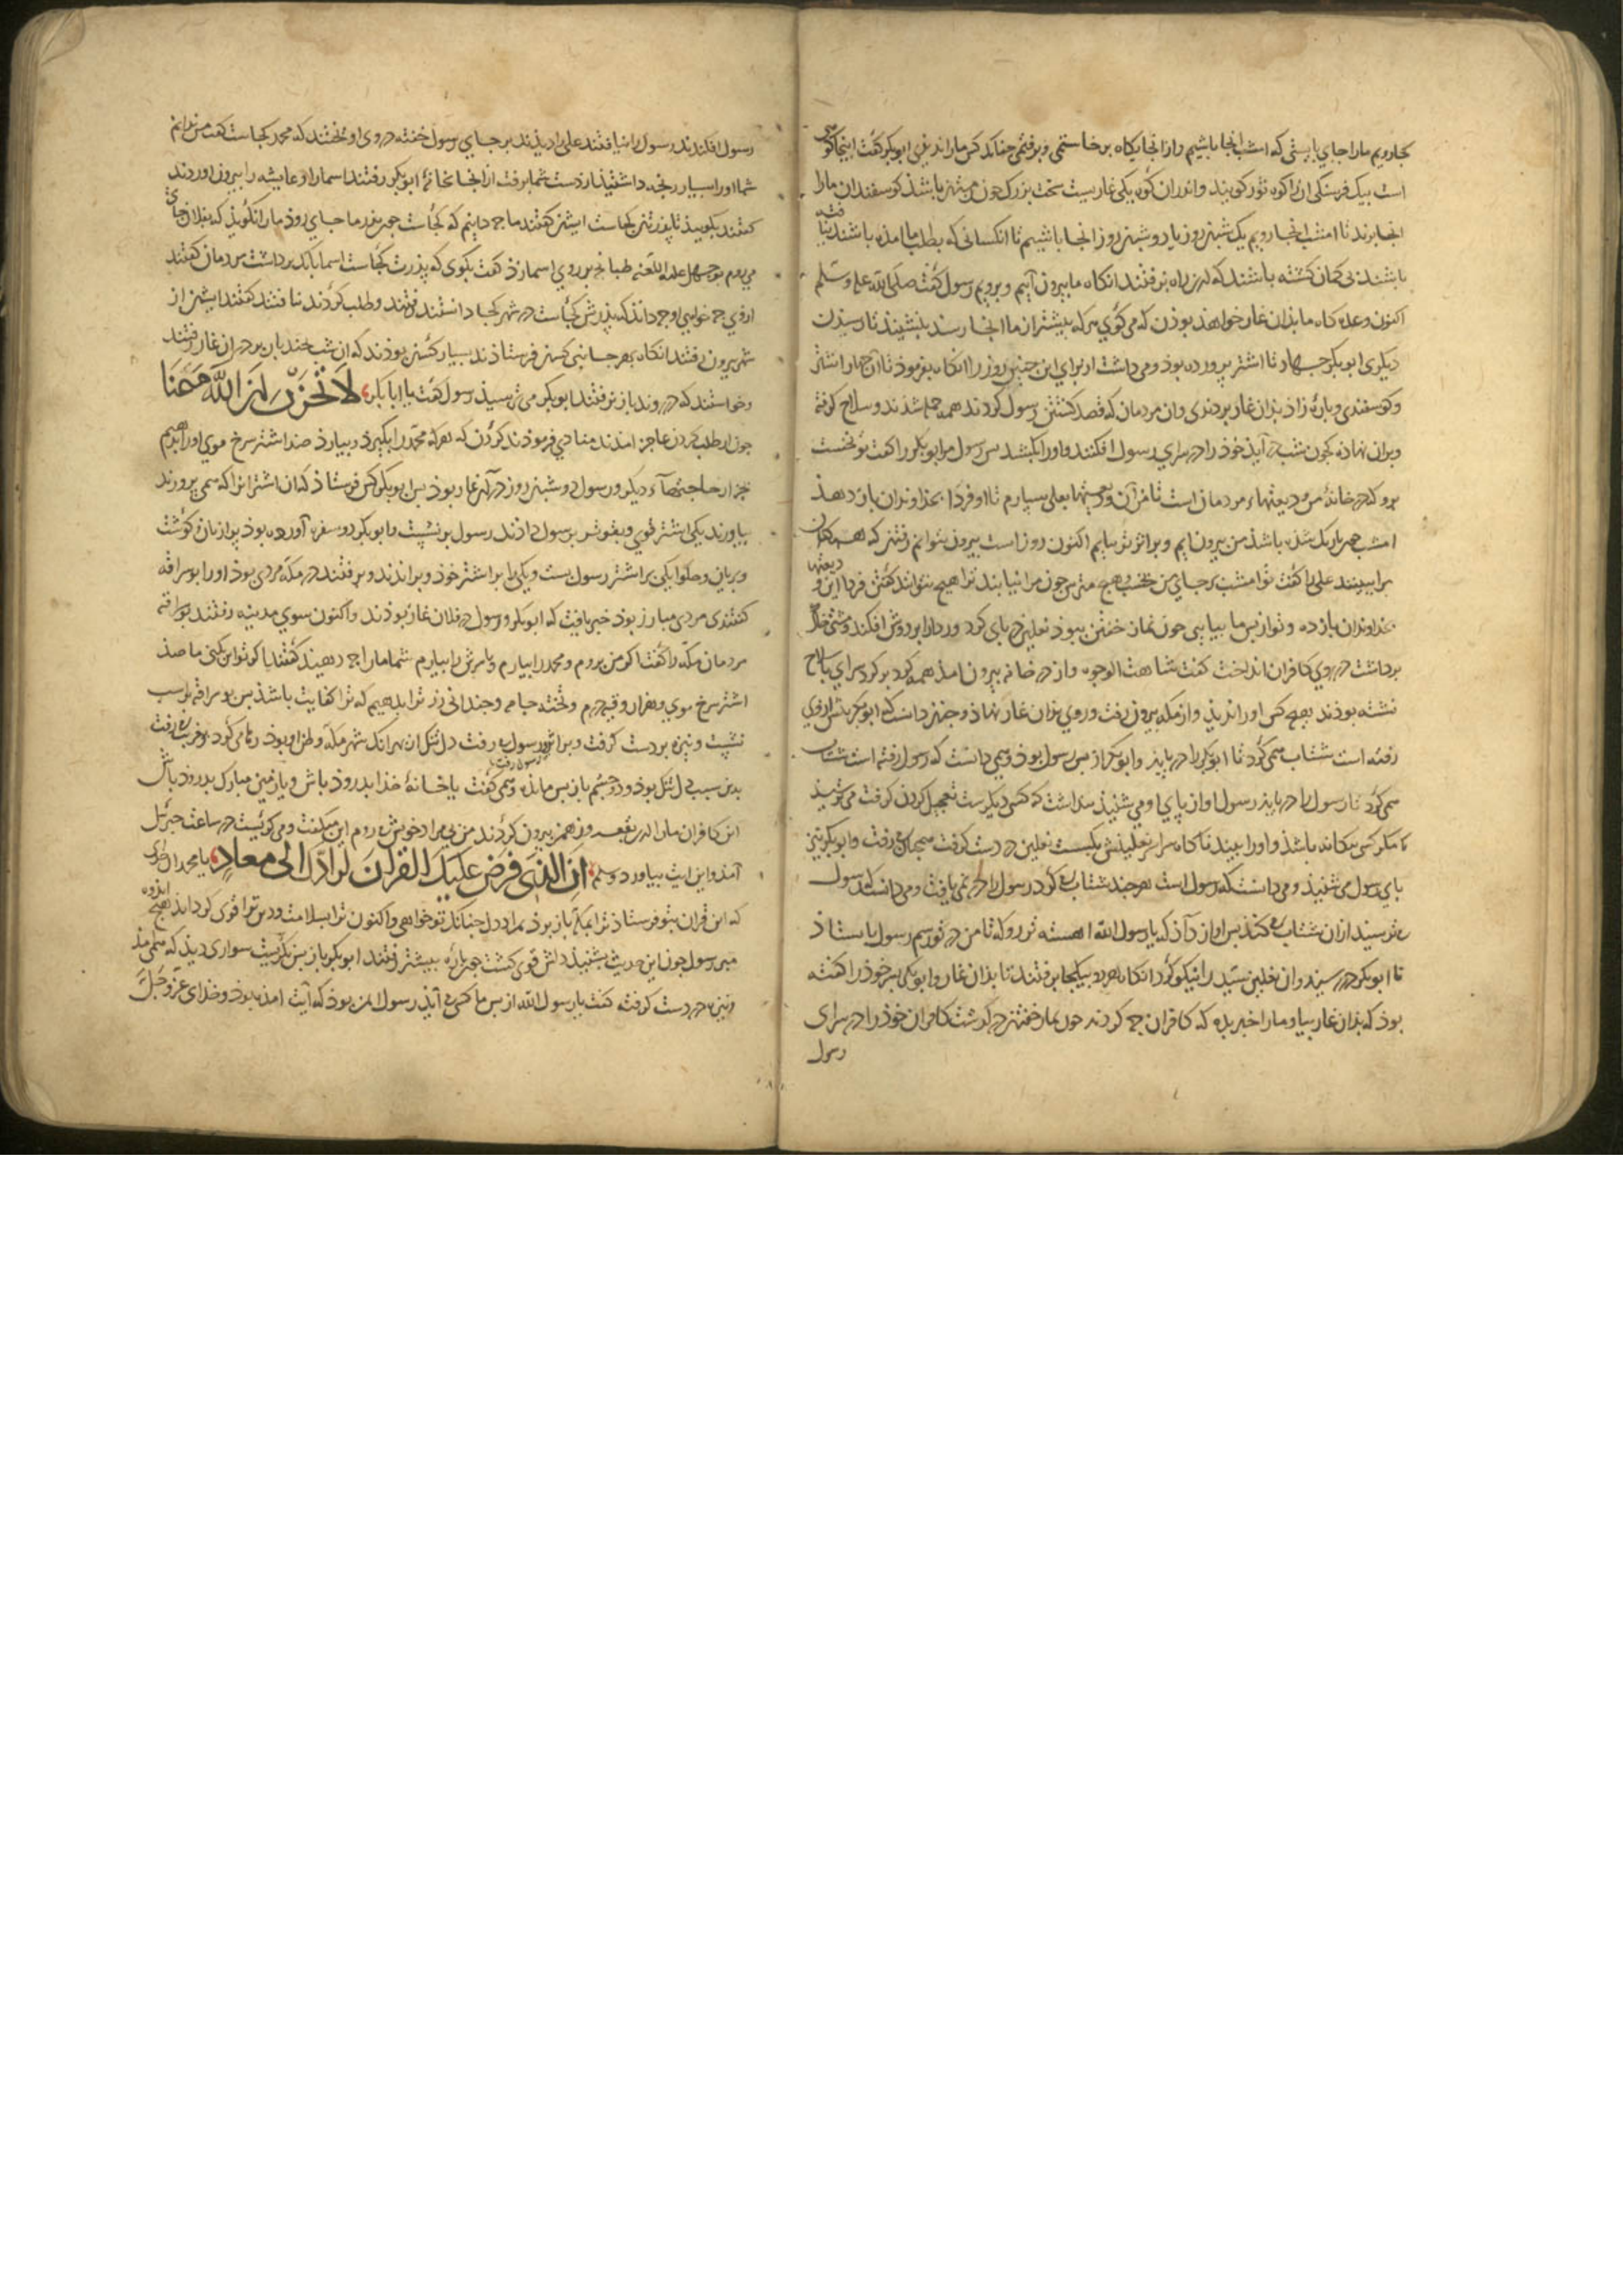 کجا رویم ما را جای بایستی که امشب آنجا باشیم و از آنجا یکاه برخاستمی و برفتمی چنانک کس ما را ندیدی ابوبکر گفت اینجا کوهی
است بیک فرسنگی آن را کوه ثور گویند و اندران کوه یکی غاریست سخت بزرک من باشذ کوسفندان ما را
آنجا برند تا امشب آنجا رویم یک شبنروز یا دو شبنروز آنجا باشیم تا آنکسانی که بطلب ما آمده باشند
باشند بی کمان کشته باشند که این راه برفتند آنکاه ما بیرون آییم و برویم رسول گفت صلی الله علیه وسلم
اکنون وعده کاه ما بدان غار خواهذ بوذن که می کوی هر که بیشتر از ما آنجا رسذ بنشیند تا رسیدن
دیکری ابوبکر چهار تا اشتر پرورده بوذ و می داشت از برای این چنین روز را آنکاه بفرموذ تا آن چهار اشتر
و کوسفندی و پاره زاد بدان غار بردندی وان مردمان که قصد کشتن رسول کردند همه جمله شدند و سلاح کرفته
و بران نهاذه کچون شب در آیذ خوذ را در سرای رسول افکنند و او را بکشند پس رسول مر ابوبکر را گفت تو نخست
برو که در خانهٔ من ودیعتهاء مردمان است تا من آن ودیعتها بعلی سپارم تا او فردا بخذاوندان باز دهذ
امشب تاریک شذه باشذ من بیرون آیم و بر اثر تو بیایم اکنون روز است بیرون نتوانم رفتن که همکنان
مرا ببینند علی را گفت تو امشب بر جای من بخسب و هیچ مترس چون مرا نیابند ترا هیچ نتوانند گفتن فردا این ودیعتها
بخذاوندان باز ده و تو از پس ما بیایی چون نماز خفتن ببوذ نعلین در پای کرد و ردا را بر دوش افکند و مشتی خاک
برداشت در روی کافران انداخت گفت شاهت الوجوه و از در خانه بیرون آمذ همه کرد بر کرد سرای با سلاح
نشسته بوذند هیچ کس او را ندیذ و از مکه بیرون رفت و روی بدان غار نهاذ و چنین دانست که ابوبکر پیش ازوی
رفته است شتاب همی کرد تا ابوبکر را در یابذ و ابوبکر از پس رسول بوذ و همی دانست که رسول رفته است شتاب
همی کرد تا رسول را در یابذ رسول آواز پای او می شنیذ پنداشت که کسی دیکرست تعجیل کردن کرفت می ترسیذ
که مکر کسی بیکانه باشذ و او را بیند ناکاه سر نعلینش بکسست نعلین در دست کرفت همچنان می رفت و ابوبکر نیز
پای رسول می شنیذ و می دانست که رسول است هر چند شتاب می کرد رسول را در نمی یافت و می دانست که رسول
می ترسیذ ازان شتاب می کند پس آواز داذ که یا رسول الله آهسته تر رو که تا من در تو رسم رسول بایستاذ
تا ابوبکر در رسیذ و آن نعلین سیّد را نیکو کرد آنکاه هر دو بیکجا برفتند تا بذان غار و ابوبکر پسر خوذ را گفته
بوذ که بذان غار بیا و ما را خبر بده که کافران چه کردند چون نماز خفتن در گذشت کافران خوذ را در سرای
رسول
رسول افکندند رسول را نیافتند علی را دیذند بر جای رسول خفته در وی آویختند که محمد کجاست گفت من ندانم
شما او را بسیار رنجه داشتیذ از دست شما برفت از آنجا بخانهٔ ابوبکر رفتند اسما را و عایشه را بیرون آوردند
گفتند بگوییذ تا پدرتان کجاست ایشان گفتند ما چه دانیم که کجاست چون پدر ما جای روذ ما را نگویذ که بفلان جای
می روم بوجهل علیه اللعنه طبانچه بر روی اسما زذ گفت بگوی که پذرت کجاست اسما بانک برداشت مردمان گفتند
ازوی چه خواهی او چه داند که پذرش کجاست در شهر کجا دانستند رفتند و طلب کردند نیافتند گفتند ایشان از
شهر بیرون رفتند آنکاه بهر جانبی کسان فرستاذند بسیار کسان بوذند که آن شب چند بار بر در آن غار رفتند
و خواستند که در روند باز برفتند ابوبکر می ترسیذ رسول گفت یا ابا بکر لَا تَحْزَنْ اِنَّ اللّٰهَ مَعَنَا
چون از طلب کردن عاجز آمدند منادی فرموذند کردن که هر که محمد را بکیرذ و بیارذ صد اشتر سرخ موی او را بدهیم
بجز از حاجتهاء دیکر و رسول دو شبنروز در آن غار بوذ پس ابوبکر کس فرستاذ که آن اشتران را که همی پرورند
بیاورند یکی اشتر قوی و بقوت تر برسول داذند رسول بر نشست و ابوبکر دو سفره آورده بوذ پر از نان و گوشت
و بریان و حلوا یکی بر اشتر رسول بست و یکی را بر اشتر خوذ و براندند و برفتند در مکه مردی بوذ او را بو سراقه
گفتندی مردی مبارز بوذ خبر یافت که ابوبکر و رسول در فلان غار بوذند و اکنون سوی مدینه رفتند بو سراقه
مردمان مکه را گفت اگر من بروم و محمد را بیارم و یا سرش را بیارم شما مرا چه دهیذ گفتند اگر تو این بکنی ما صذ
اشتر سرخ موی و هزار وقیه درم و تخته جامه و چندانی زر ترا بدهیم که ترا کفایت باشذ پس بو سراقه بر اسب
نشست و نیزه بر دست کرفت و بر اثر رسول می رفت دل تنک از بهر آنک شهر مکه وطن او بوذ رها می کرد و بغریبی می رفت
بدین سبب دل تنک بوذ و دو چشم باز پس مانده و همی گفت یا خانهٔ خذا بدروذ باش و یا زمین مبارک بدروذ باش
این کافران مرا از بقعه و زمین بیرون کردند من نه بمراد خویش می روم این میگفت و می کریست در ساعت جبرئیل
آمذ و این آیت بیاورد و سلم اِنَّ الَّذِی فَرَضَ عَلَیْکَ الْقُرْآنَ لَرَادُّکَ اِلٰی مَعَادٍ یا محمد آن خدای
که این قران بتو فرستاذ ترا بمکه باز بوذ بمراد دل چنانک تو خواهی و اکنون ترا بسلامت و دین ترا قوی کرداند اندوه هیچ
مبر رسول چون این حدیث بشنیذ دلش قوی گشت چون پاره بیشتر رفتند ابوبکر باز پس نکریست سواری دیذ که همی آمذ
و نیزه در دست کرفته گفت یا رسول الله از پس ما کسی می آیذ رسول ایمن بوذ که آیت آمذه بوذ و خدای عزّ و جلّ